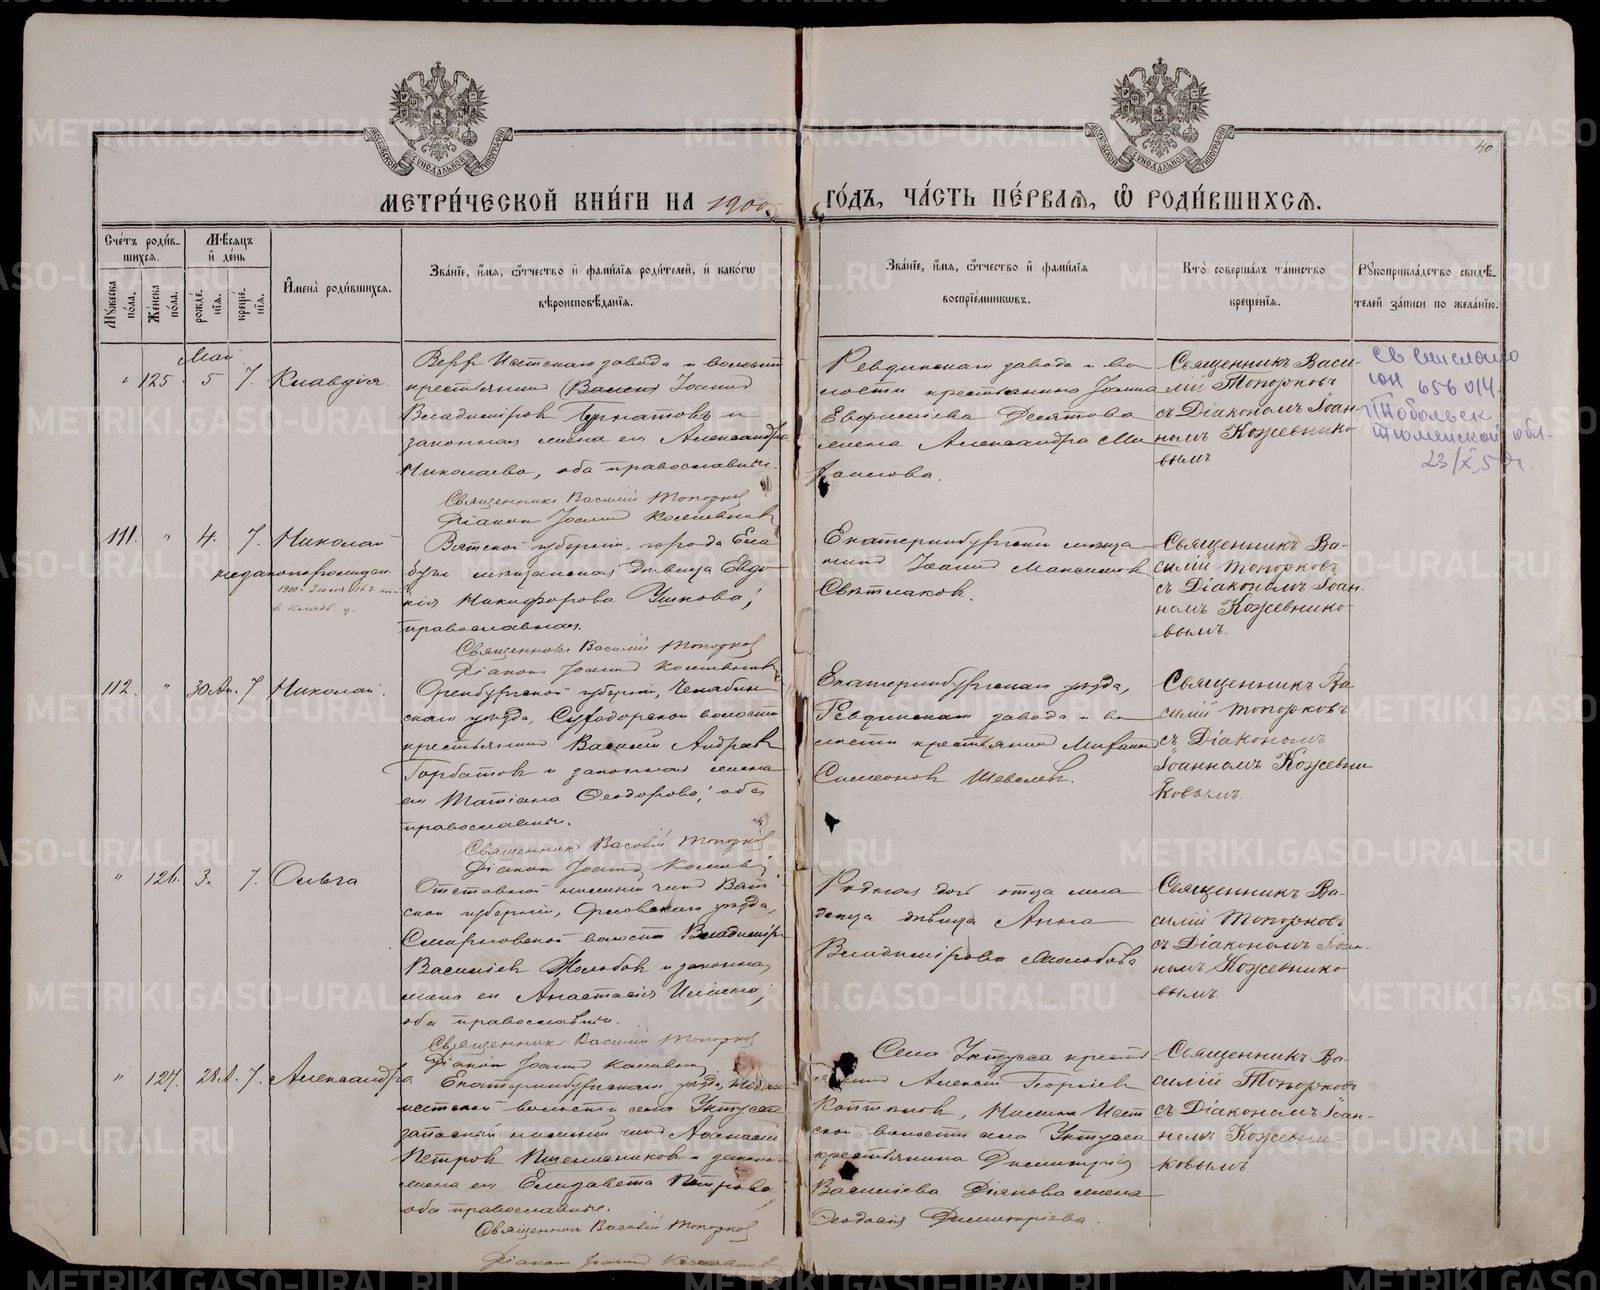 40.
МЕТРИ́ЧЕСКОЙ КНИ́ГИ НА 1900
ГО́ДЪ, ЧА́СТЬ ПЕ́РВАѦ, Ѽ РОДИ́ВШИХСѦ.
Сче́тъ роди́в-
шихсѧ.
Мѣ́сѧцъ
и҆ де́нь
И҆мена̀ роди́вшихсѧ.
Зва́нїе, и҆́мѧ, ѻ҆́тчество и҆ фами́лїѧ роди́телей, и҆ како́гѡ
вѣроисповѣ́данїѧ.
Зва́нїе, и҆́мѧ, ѻ҆́тчество и҆ фами́лїѧ
воспрїе́мникѡвъ.
Кто̀ соверша́лъ та́инство
креще́нїѧ.
Рꙋкоприкла́дство свидѣ́-
телей за́писи по жела́нїю.
Мꙋ́жеска по́ла.
Же́нска по́ла.
рожде́нїѧ.
креще́нїѧ.
Май
" 125 5 7. Клавдія.
Верх Исетскаго завода и волости
крестьянинъ Іоаннъ
Владиміровъ и
законная жена его Александра
Николаева, оба православные.
Священникъ Василій Топорковъ
Діаконъ Іоаннъ Кожевниковъ
Ревдинскаго завода и во
лости крестьянина Іоанна
Евфиміева Десятова
жена Александра Ми
хаилова.
Священникъ Васи-
лій Топорковъ
съ Діакономъ Іоан-
номъ Кожевнико
вымъ
656014
Тобольск
Тюменской обл.
111. " 4. 7. Николай
незаконорожден
Вятской губерніи, города Ела
буги мѣщанская дѣвица Евдо
кія Никифорова Ушкова,
православная.
Священникъ Василій Топорковъ
Діаконъ Іоаннъ Кожевниковъ
Екатеринбургскій мѣща
нинъ Іоаннъ Максимовъ
Свѣтлаковъ.
Священникъ Ва-
силій Топорковъ
съ Діакономъ Іоан-
номъ Кожевнико-
вымъ.
112. " 30 Ап. 7 Николай.
Оренбургской губерніи, Челябин
скаго уѣзда, волости
крестьянинъ Василій Андреевъ
Горбатовъ и законная жена
его Татіана Ѳеодорова, оба
православные.
Священникъ Василій Топорковъ
Діаконъ Іоаннъ Кожевн
Екатеринбургскаго уѣзда,
Ревдинскаго завода и во
лости крестьянинъ
Симеоновъ Шевелевъ.
Священникъ Ва
силій Топорковъ
съ Діакономъ
Іоанномъ Кожевни
ковымъ.
" 126. 3. 7. Ольга
Отставной нижній чинъ Вят
ской губерніи, Орловскаго уѣзда,
волости Владиміръ
Васильевъ и законная
жена его Анастасія
оба православные.
Священникъ Василій Топорковъ
Діаконъ Іоаннъ Кожевн
Родная дочь отца мла
денца дѣвица Анна
Владимірова
Священникъ Ва-
силій Топорковъ
съ Діакономъ Іоан-
номъ Кожевнико
вымъ.
" 127. 28 А. 7. Александра
Екатеринбургскаго уѣзда, Нижне
исетской волости села Уктуса
запасный нижній чинъ Аѳанасій
Петровъ Пшеничниковъ и законная
жена его Елизавета Петрова,
оба православные.
Священникъ Василій Топорковъ
Діаконъ Іоаннъ Кожевниковъ
Села Уктуса кресть
янинъ Алексѣй Георгіевъ
Нижне Исет
ской волости села Уктуса
крестьянина Димитрія
Васильева жена
Ѳеодосія Димитріева.
Священникъ Ва-
силій Топорковъ
съ Діакономъ Іоан-
номъ Кожевни-
ковымъ.
METRIKI.GASO-URAL.RU